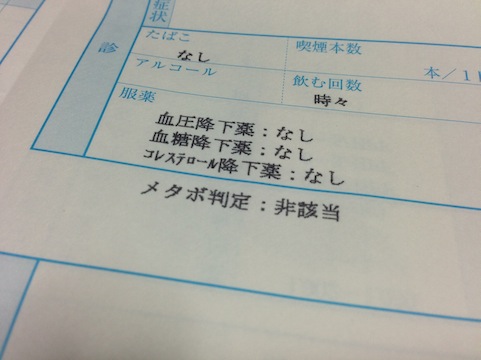 症状
診
たばこ 喫煙本数
なし 本/1
アルコール 飲む回数
時々
服薬
血圧降下薬:なし
血糖降下薬:なし
コレステロール降下薬:なし
メタボ判定:非該当